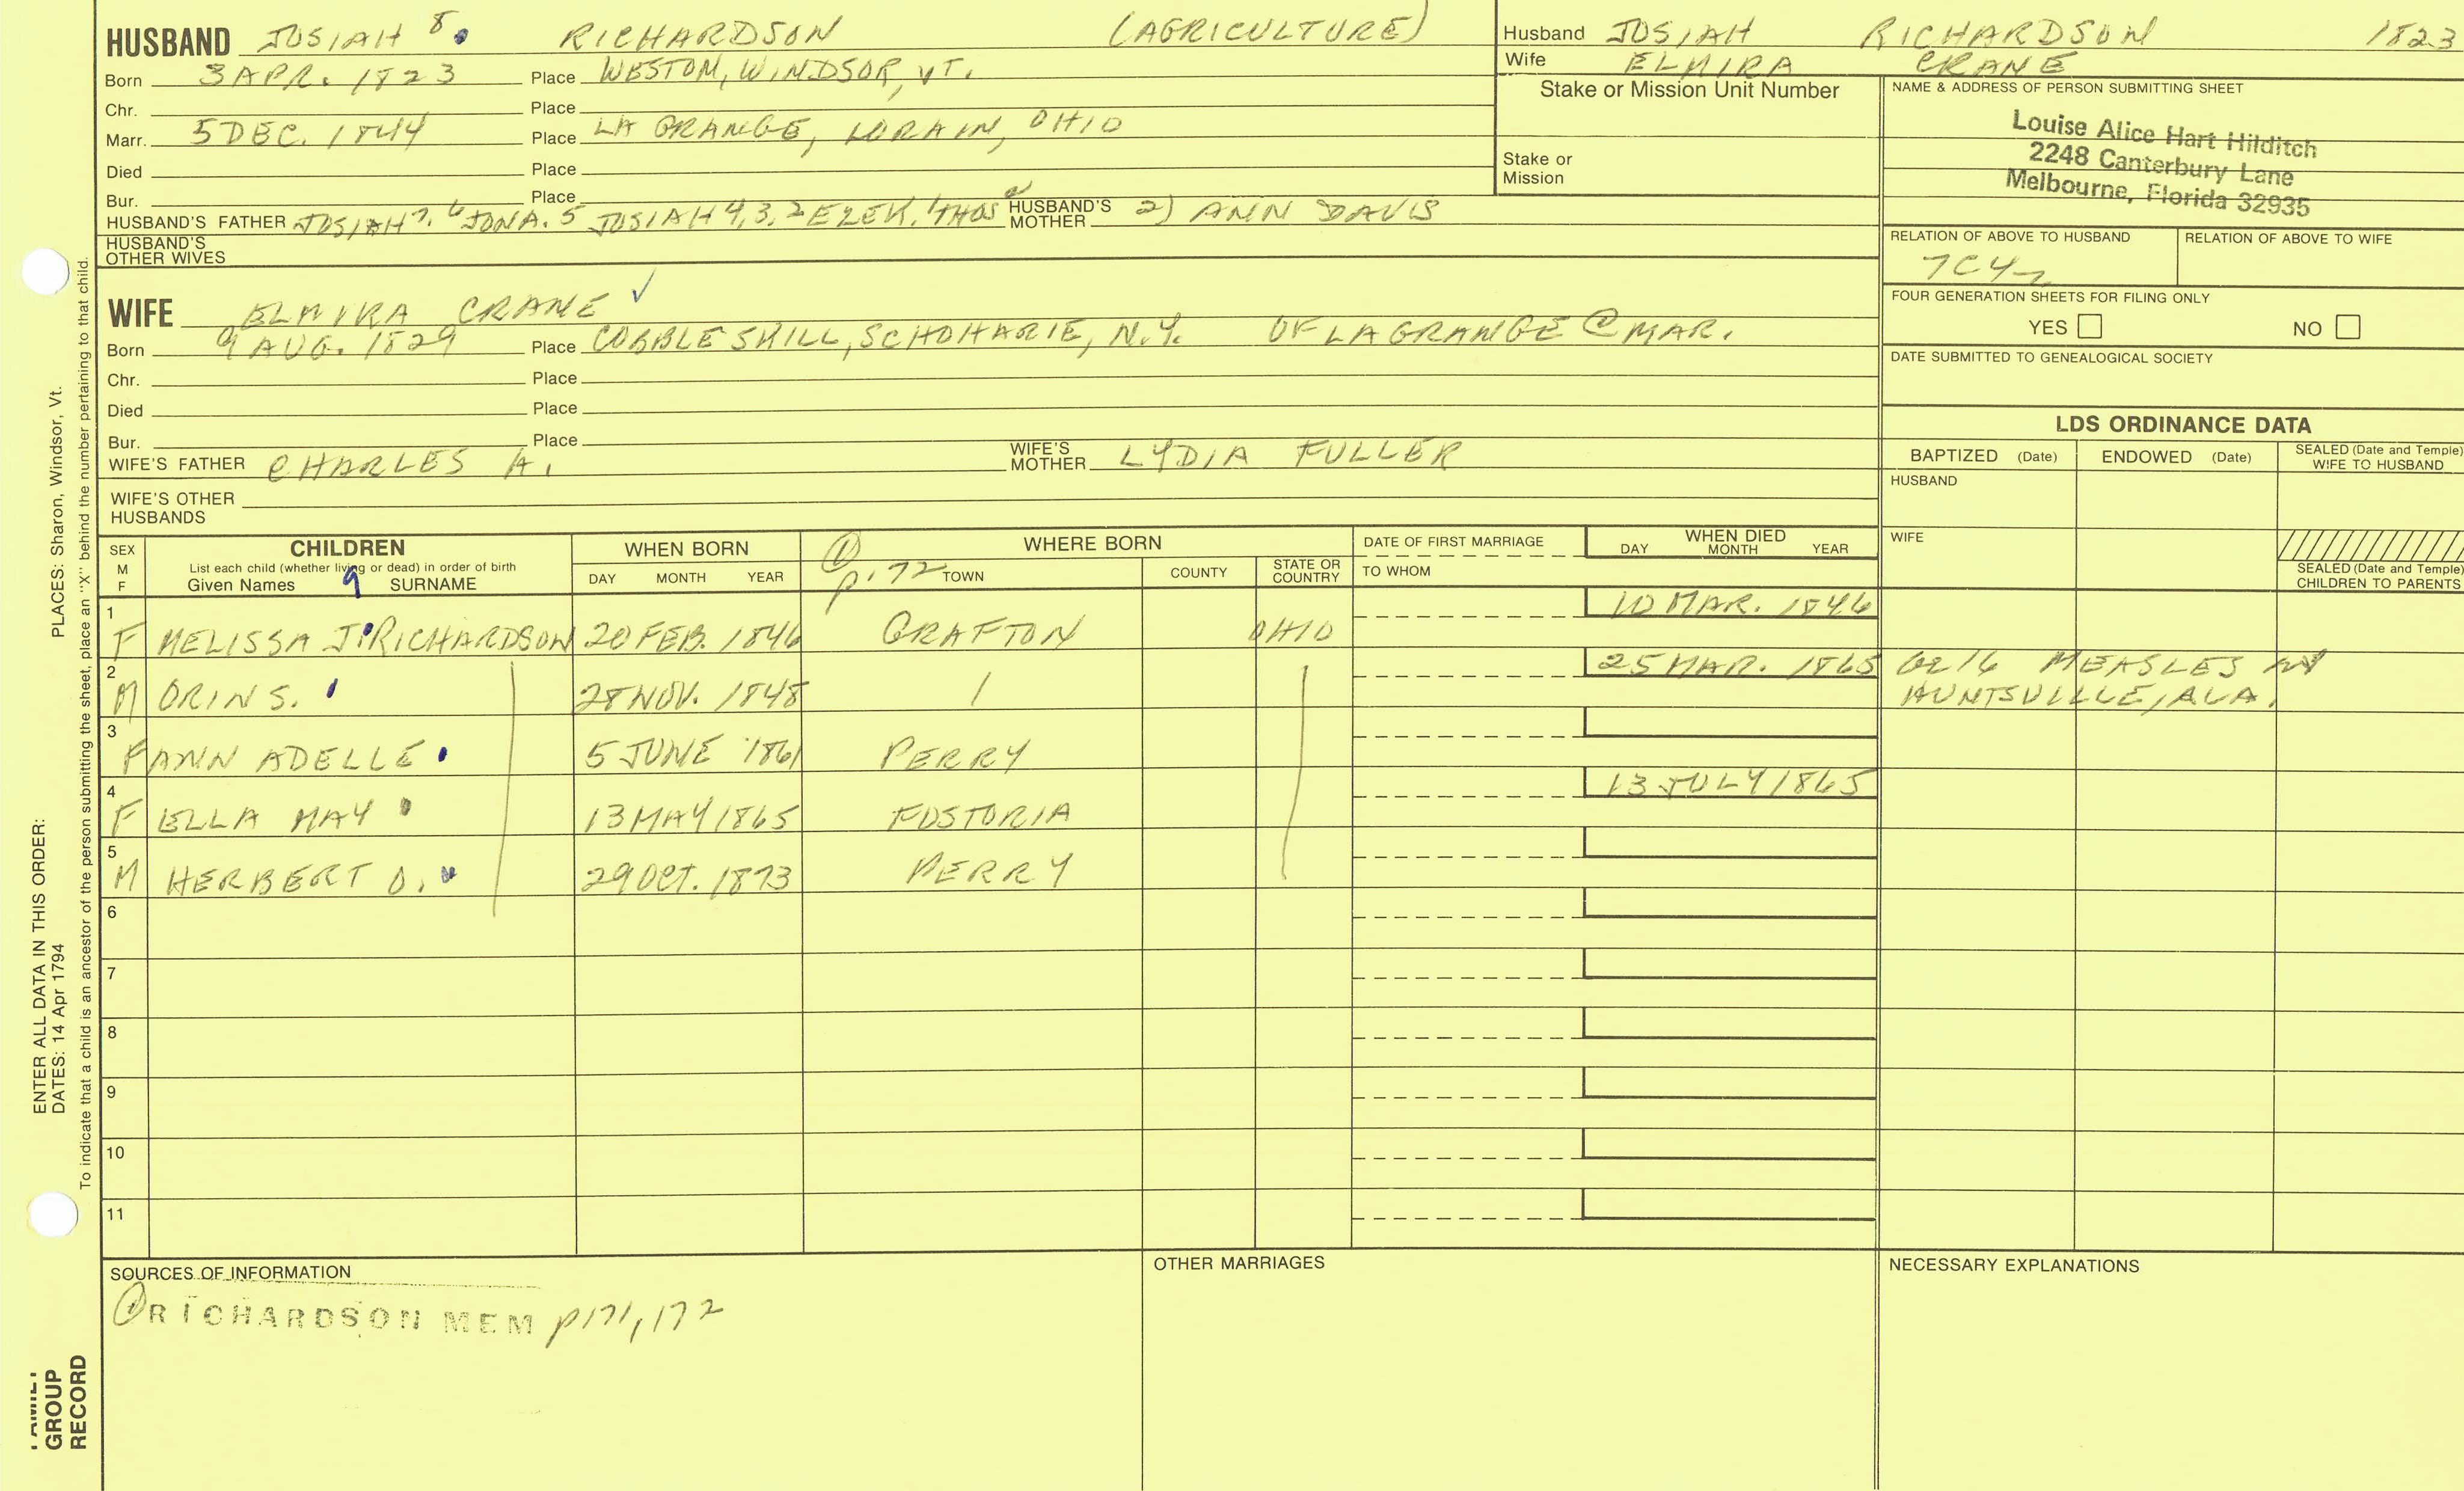 HUSBAND JOSIAH 8. RICHARDSON (AGRICULTURE)
Born 3 APR. 1823 Place WESTON, WINDSOR, VT.
Chr. Place
Marr. 5 DEC. 1844 Place LA GRANGE, LORAIN, OHIO
Died Place
Bur. Place
HUSBAND'S FATHER JOSIAH 7, 6 JONA. 5 JOSIAH 4, 3, 2 EZEK. 1 THOS HUSBAND'S MOTHER 2) ANN DAVIS
HUSBAND'S OTHER WIVES
WIFE ELMIRA CRANE ✓
Born 9 AUG. 1829 Place COBBLESKILL, SCHOHARIE, N.Y. OF LAGRANGE @ MAR.
Chr. Place
Died Place
Bur. Place
WIFE'S FATHER CHARLES A. WIFE'S MOTHER LYDIA FULLER
WIFE'S OTHER HUSBANDS
Husband JOSIAH RICHARDSON 1823
Wife ELMIRA CRANE
Stake or Mission Unit Number
Stake or Mission
NAME & ADDRESS OF PERSON SUBMITTING SHEET
Louise Alice Hart Hilditch
2248 Canterbury Lane
Melbourne, Florida 32935
RELATION OF ABOVE TO HUSBAND RELATION OF ABOVE TO WIFE
7C4
FOUR GENERATION SHEETS FOR FILING ONLY
YES NO
DATE SUBMITTED TO GENEALOGICAL SOCIETY
LDS ORDINANCE DATA
BAPTIZED (Date) ENDOWED (Date) SEALED (Date and Temple) WIFE TO HUSBAND
HUSBAND
WIFE
SEALED (Date and Temple) CHILDREN TO PARENTS
SEX M F
CHILDREN
List each child (whether living or dead) in order of birth
Given Names 9 SURNAME
WHEN BORN
DAY MONTH YEAR
① p.172
WHERE BORN
TOWN COUNTY STATE OR COUNTRY
DATE OF FIRST MARRIAGE
TO WHOM
WHEN DIED
DAY MONTH YEAR
1 F MELISSA J. RICHARDSON 20 FEB. 1846 GRAFTON OHIO 10 MAR. 1846
2 M ORIN S. 28 NOV. 1848 25 MAR. 1865 MEASLES
HUNTSVILLE, ALA.
3 F ANN ADELLE 5 JUNE 1861 PERRY
4 F ELLA MAY 13 MAY 1865 FOSTORIA 13 JULY 1865
5 M HERBERT O. 29 OCT. 1873 PERRY
6
7
8
9
10
11
SOURCES OF INFORMATION
① RICHARDSON MEM p171, 172
OTHER MARRIAGES
NECESSARY EXPLANATIONS
ENTER ALL DATA IN THIS ORDER:
DATES: 14 Apr 1794 PLACES: Sharon, Windsor, Vt.
To indicate that a child is an ancestor of the person submitting the sheet, place an "X" behind the number pertaining to that child.
FAMILY
GROUP
RECORD